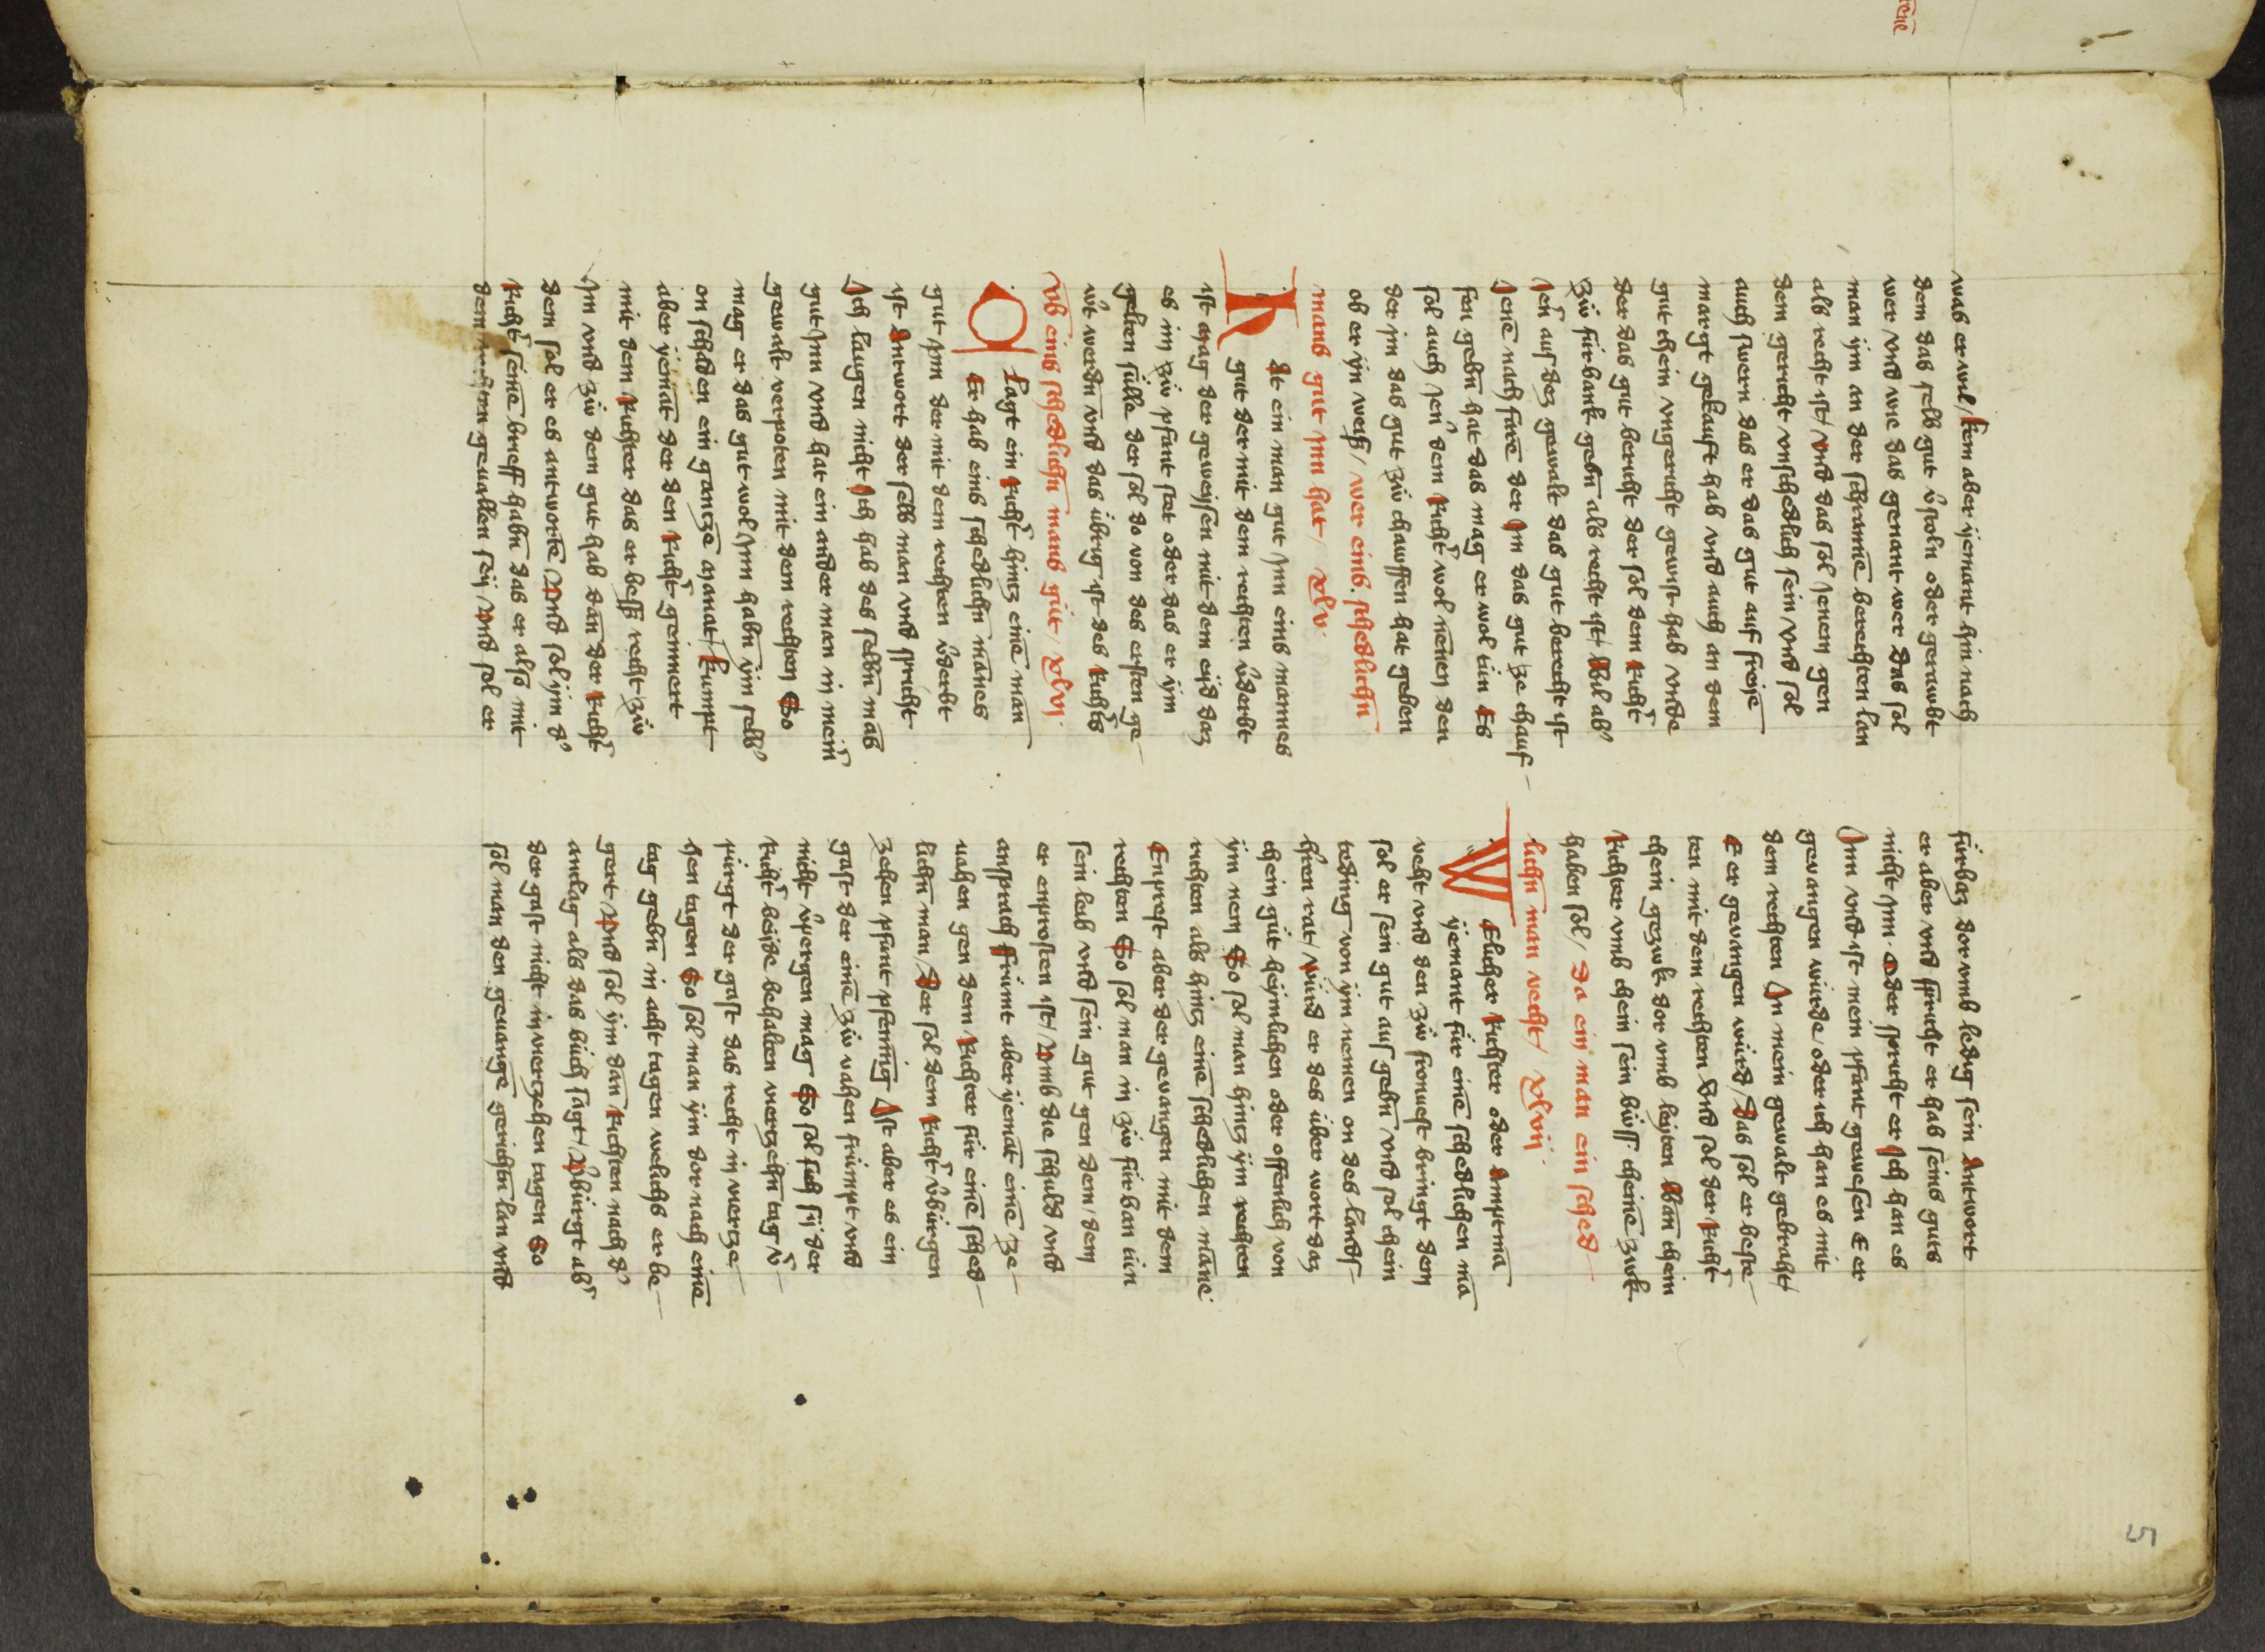 was er wil / kem aber yemant hin nach
dem das selb gut v̾stoln oder geraubt
wer vnd wie das genant wer das sol
man ym an der schrannē berechten lan
als recht ist / vnd das sol yenem gen
dem gericht vnschedlich sein vnd sol
auch swern das er das gut auf freyē
margt gekauft hab vnd auch an dem
gut chein vngericht gewist hab vnde
der das gut bericht der sol dem Richt̾
zü fürbank gebn als recht ist / Wil ab̾
yen̾ aus dez gewalt das gut berecht ist
Jenē nach farē der Jm das gut ze chauf
fen gebn hat das mag er wol tün Es
sol auch yen̾ dem Richt̾ wol nēnen den
der jm das gut zü chauffen hat geben
ob er yn weiß / wer eins schedlichn
mans gut ynn hat / xlv.
Hat ein man gut ynn eins mannes
gut der mit dem rechten v̾derbt
ist mag der geweysen mit dem eyd daz
es in zü pfant stet oder das er ym
gelten sülle der sol do von des ersten ge
w̾t werdn vnd das übrig ist des Richt̾s
vb eins schedlichn mans güt / xlvj.
Clagt ein Richt̾ hintz einē man
Er hab eins schedlichn mānes
gut ynn der mit dem rechten v̾derbt
ist Antwort der selb man vnd spricht
Ich laugen nicht Ich hab des selbn māns
gut ynn vnd hat ein ander man in mein̾
gewalt verpoten mit dem rechten So
mag er das gut wol ynn habn ym selb̾
on schaden ein gantzē manat / kumpt
aber yemāt der den Richt̾ geinnert
mit dem Richter das er bess recht zü
Jm vnd zü dem gut hab dan der Richt̾
dem sol er es antwortē Vnd sol ym d̾
Richt̾ seinē brieff habn das er also mit
dem rechten geuallen sey / Vnd sol er
fürbaz dor vmb ledig sein Antwort
er aber vnd spricht er hab seins guts
nicht ynn Oder spricht er Ich han es
Jnn vnd ist mein pfant gewesen E er
gevangen würde / oder ich han es mit
dem rechten Jn mein gewalt gebracht /
E er gevangen würd / das sol er beste
ten mit dem rechten Vnd sol der Richt̾
chein gezwk dor vmb leyten Wan chein
Richter vmb chein sein büss cheinē zwk
haben sol / Da ein man ein sched
lichn man vecht / xlvij.
Welicher Richter oder Amptmā
yemant für einē schedlichen mā
vecht vnd den zü fronuest bringt dem
sol er sein gut aus gebn vnd sol chein
teding von ym nemen on des lands
hren rat / Würd er des über wort daz
chein güt heymlichen oder offenlich von
ym nem So sol man hintz ym rechten
richten als hintz einē schedlichen mānē
Enprest aber der gevangen mit dem
rechten So sol man in zü fürban tün
sein leib vnd sein gut gen dem / dem
er enprosten ist / Vmb die schuld vnd
ansprach frümt aber yemāt einē ze
vahen gen dem Richter für einē sched
lichn man / Der sol dem Richt̾ v̾bürgen
zehen pfunt pfennig Ist aber es ein
gast der einē zü vahen frümpt vnd
nicht v̾pergen mag So sol sich sy der
Richt̾ beyde behalten viertzehn tag v̾
pürgt der gast das recht in viertze
hen tagen So sol man ym dor nach einē
tag gebn in acht tagen welichs er be
gert Vnd sol ym dan Richten nach d̾
anclag als das büch sagt / V̾bürgt ab̾
der gast nicht in viertzehen tagen So
sol man den geuangē gerichtn lan vnd
5